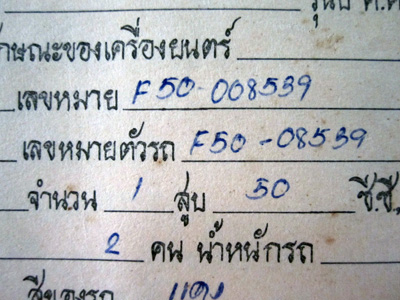 รุ่นปี ค.ศ
ลักษณะของเครื่องยนตร์
เลขหมาย F50-008539
เลขหมายตัวรถ F50-08539
จำนวน 1 สูบ 50 ซี.ซี.
2 คน น้ำหนักรถ
สีของรถ แดง